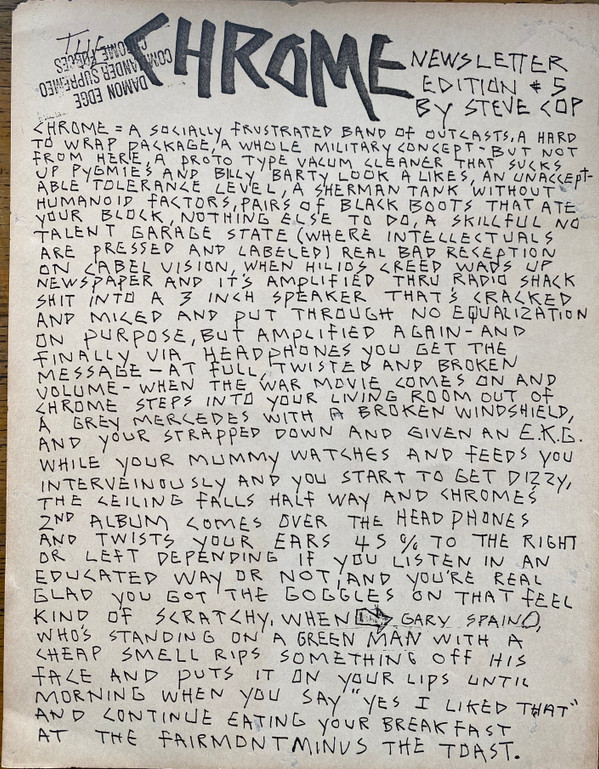 THE CHROME NEWSLETTER
EDITION # 5
BY STEVE COP
DAMON EDGE
COMMANDER SUPREME
CHROME FORCES
CHROME = A SOCIALLY FRUSTRATED BAND OF OUTCASTS, A HARD
TO WRAP PACKAGE, A WHOLE MILITARY CONCEPT - BUT NOT
FROM HERE, A PROTO TYPE VACUM CLEANER THAT SUCKS
UP PYGMIES AND BILLY BARTY LOOK A LIKES, AN UNACCEPT-
ABLE TOLERANCE LEVEL, A SHERMAN TANK WITHOUT
HUMANOID FACTORS, PAIRS OF BLACK BOOTS THAT ATE
YOUR BLOCK, NOTHING ELSE TO DO, A SKILLFUL NO
TALENT GARAGE STATE (WHERE INTELLECTUALS
ARE PRESSED AND LABELED) REAL BAD RECEPTION
ON CABEL VISION, WHEN HILIOS CREED WADS UP
NEWSPAPER AND IT'S AMPLIFIED THRU RADIO SHACK
SHIT INTO A 3 INCH SPEAKER THAT'S CRACKED
AND MICED AND PUT THROUGH NO EQUALIZATION
ON PURPOSE, BUT AMPLIFIED AGAIN - AND
FINALLY VIA HEADPHONES YOU GET THE
MESSAGE - AT FULL, TWISTED AND BROKEN
VOLUME - WHEN THE WAR MOVIE COMES ON AND
CHROME STEPS INTO YOUR LIVING ROOM OUT OF
A GREY MERCEDES WITH A BROKEN WINDSHIELD,
AND YOUR STRAPPED DOWN AND GIVEN AN E.K.G.
WHILE YOUR MUMMY WATCHES AND FEEDS YOU
INTERVEINOUSLY AND YOU START TO GET DIZZY,
THE CEILING FALLS HALF WAY AND CHROMES
2ND ALBUM COMES OVER THE HEADPHONES
AND TWISTS YOUR EARS 45 % TO THE RIGHT
OR LEFT DEPENDING IF YOU LISTEN IN AN
EDUCATED WAY OR NOT, AND YOU'RE REAL
GLAD YOU GOT THE GOGGLES ON THAT FEEL
KIND OF SCRATCHY, WHEN GARY SPAIN,
WHO'S STANDING ON A GREEN MAN WITH A
CHEAP SMELL RIPS SOMETHING OFF HIS
FACE AND PUTS IT ON YOUR LIPS UNTIL
MORNING WHEN YOU SAY "YES I LIKED THAT"
AND CONTINUE EATING YOUR BREAKFAST
AT THE FAIRMONT MINUS THE TOAST.